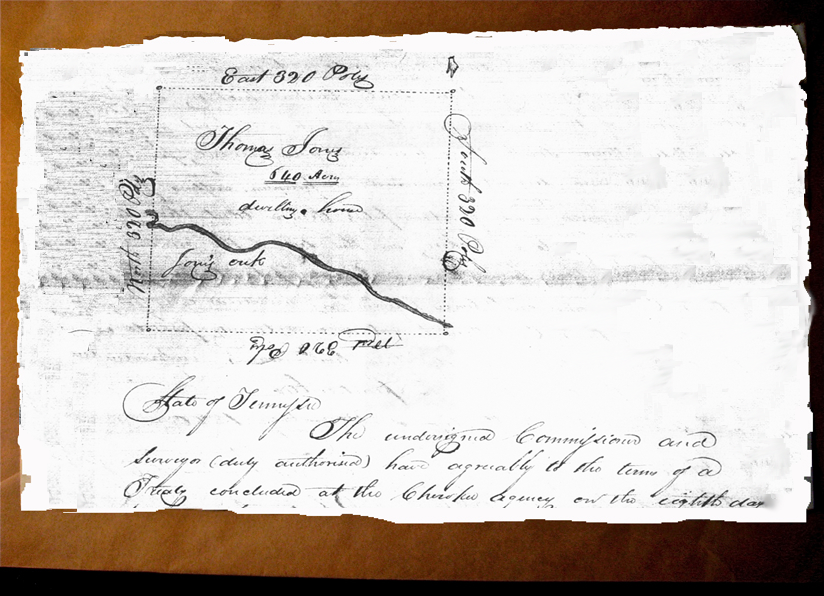 East 320 Poles
Thomas Jones
640 Acres
dwelling home
North 320 Poles
South 320 Poles
Jones creek
West 320 Poles
State of Tennessee
The undersigned Commissioner and
Surveyor (duly authorised) have agreeably to the terms of a
Treaty concluded at the Cherokee Agency on the eighth day